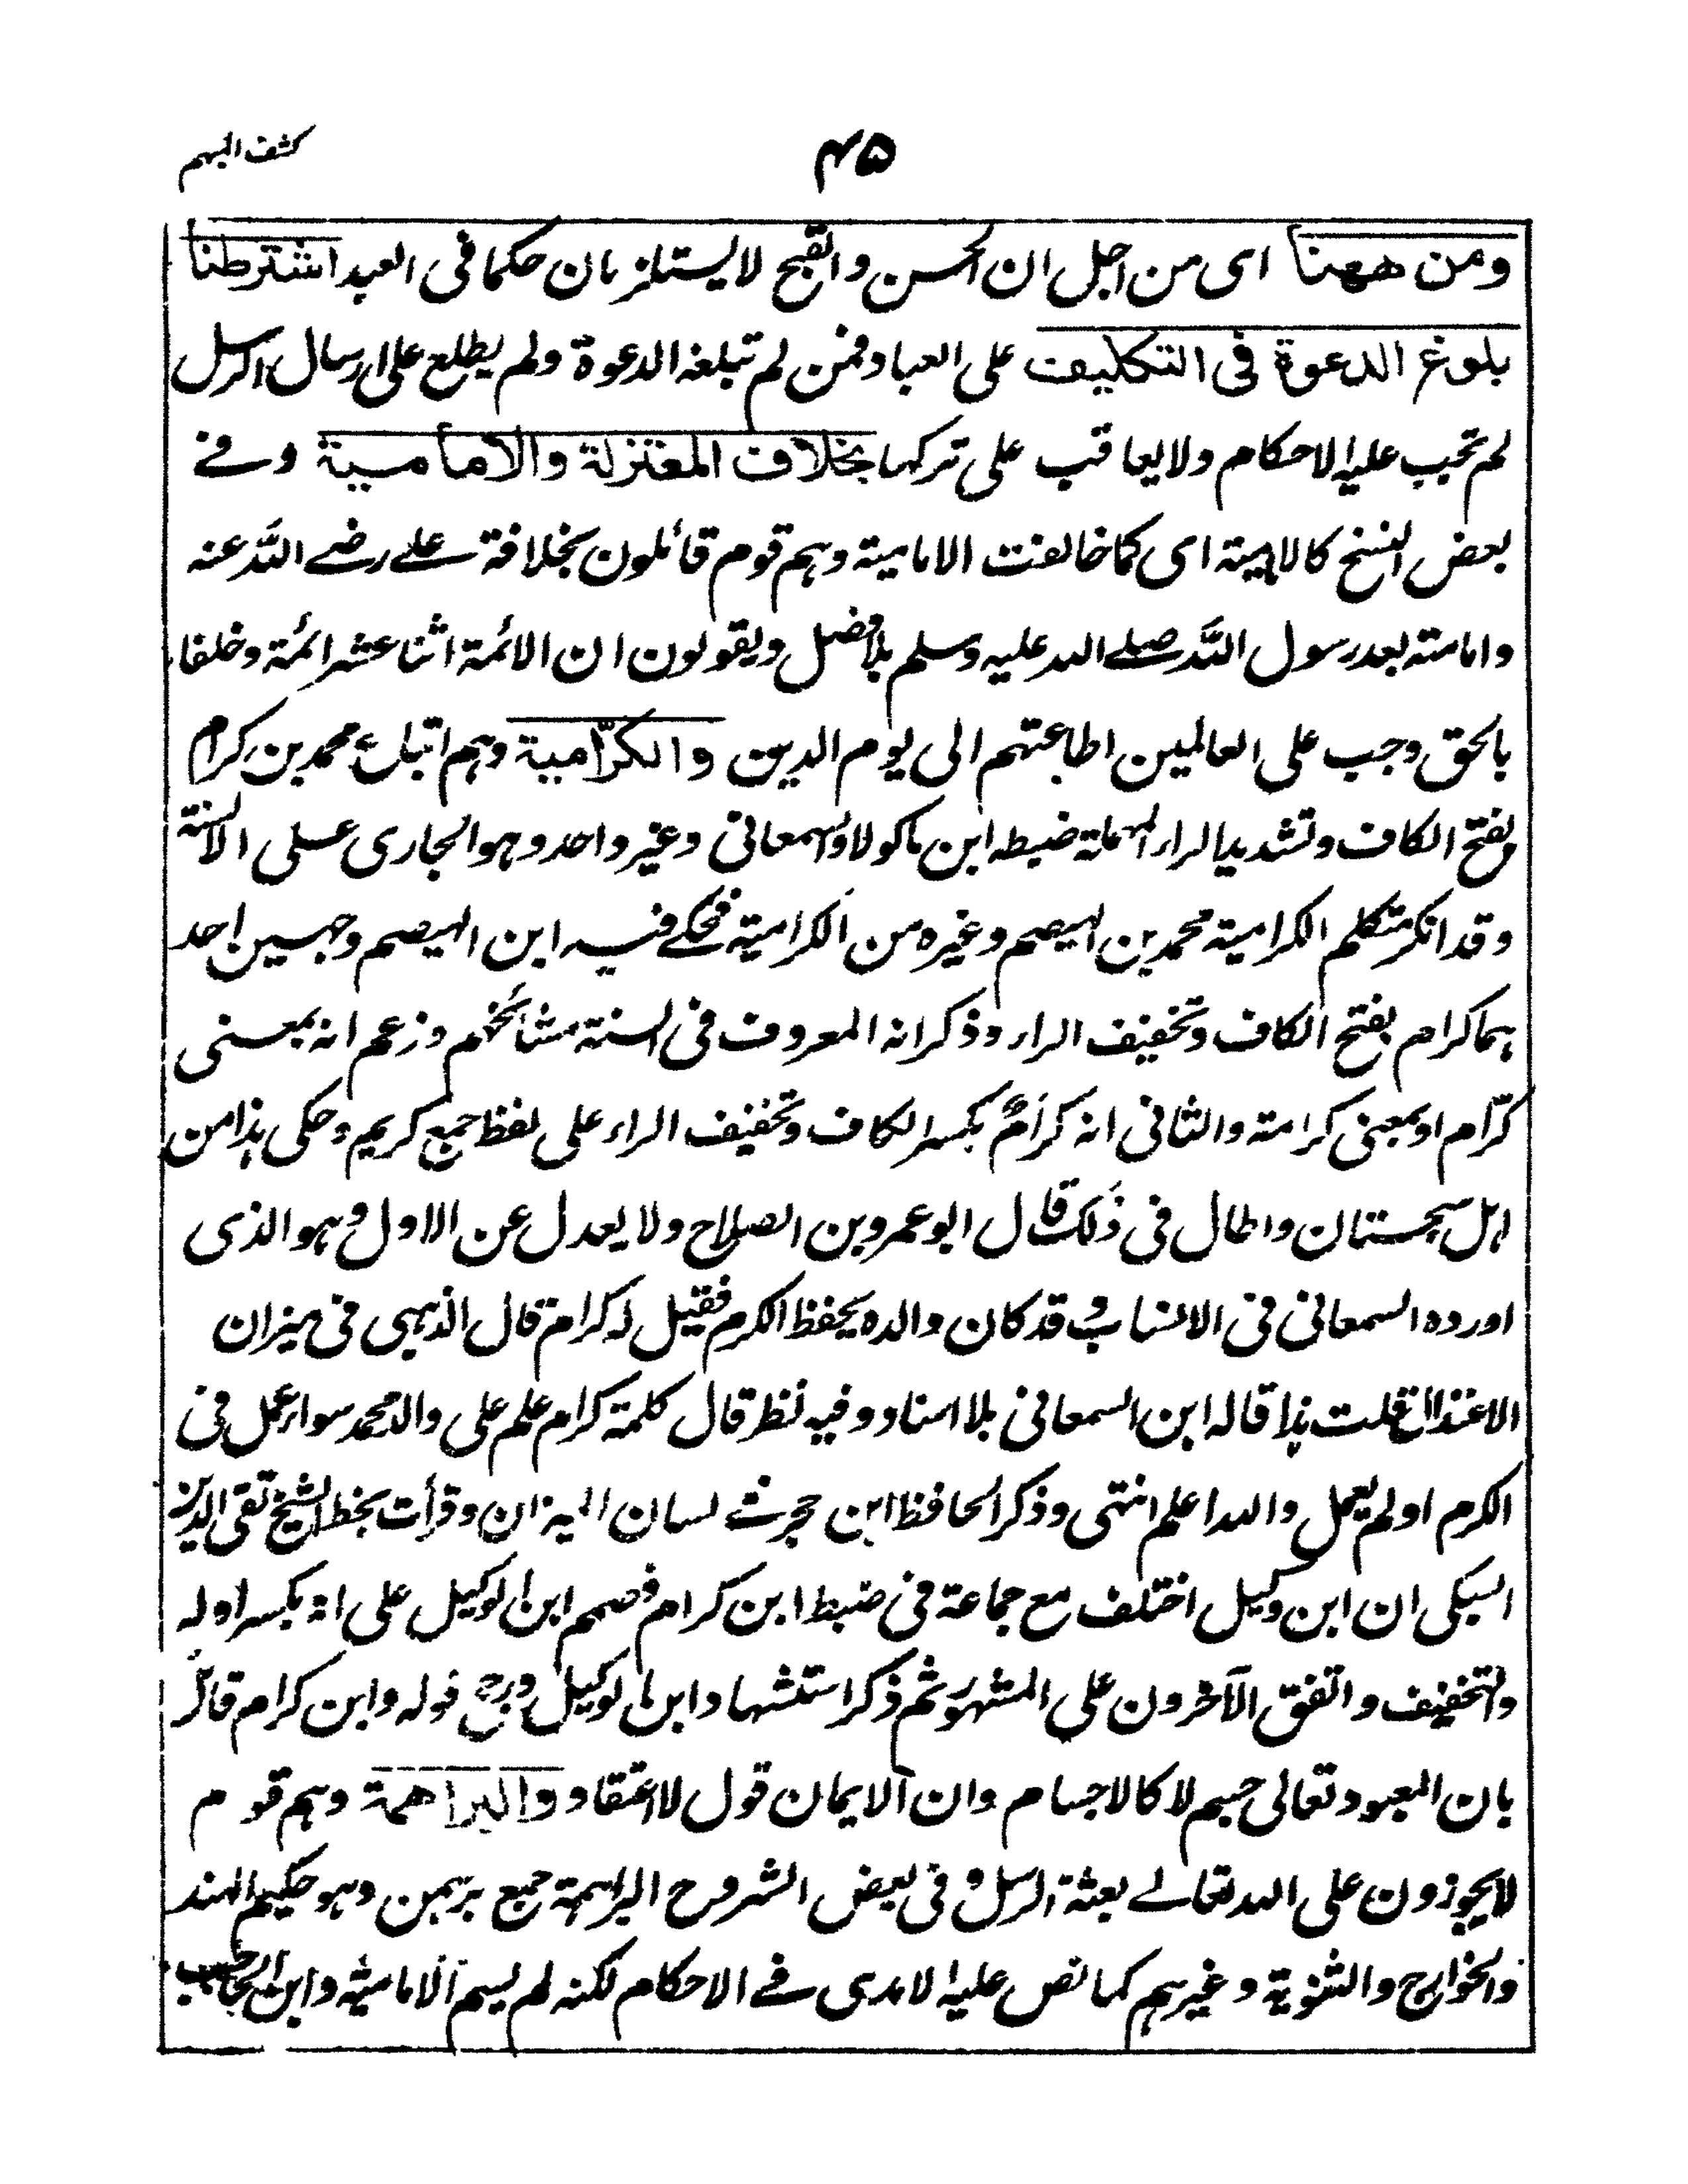 كشف المبهم
٤٥
ومن ههنا اى من اجل ان الحسن والقبح لا يستلزمان حكما فى العبد اشترطنا
بلوغ الدعوة فى التكليف على العباد فمن لم تبلغه الدعوة ولم يطلع على ارسال الرسل
لم تجب عليه الاحكام ولا يعاقب على تركها بخلاف المعتزلة والامامية وفى
بعض النسخ كالامامية اى كما خالفت الامامية وهم قوم قائلون بخلافة على رضى الله عنه
وامامته بعد رسول الله صلى الله عليه وسلم بلا فصل ويقولون ان الائمة اثنا عشر ائمة وخلفاء
بالحق وجب على العالمين اطاعتهم الى يوم الدين والكرّامية وهم اتباع محمد بن كرام
بفتح الكاف وتشديد الراء المهملة ضبطه ابن ماكولا والسمعانى وغير واحد وهو الجارى على الالسنة
وقد انكر متكلم الكرامية محمد بن الهيصم وغيره من الكرامية فحكى فيه ابن الهيصم وجهين احد
هما كرام بفتح الكاف وتخفيف الراء وذكر انه المعروف فى السنة مشائخهم وزعم انه بمعنى
كرّام او بمعنى كرامة والثانى انه كرام بكسر الكاف وتخفيف الراء على لفظ جمع كريم وحكى هذا من
اهل سجستان واطال فى ذلك قال ابو عمرو بن الصلاح ولا يعدل عن الاول وهو الذى
اورده السمعانى فى الانساب وقد كان والده يحفظ الكرم فقيل له كرام قال الذهبى فى ميزان
الاعتدال قلت هذا قاله ابن السمعانى بلا اسناد وفيه نظر قال كلمة كرام علم على والد محمد سواء عمل فى
الكرم او لم يعمل والله اعلم انتهى وذكر الحافظ ابن حجر فى لسان الميزان وقرأت بخط الشيخ تقى الدين
السبكى ان ابن وكيل اختلف مع جماعة فى ضبط ابن كرام فصمم ابن الوكيل على انه بكسر اوله
والتخفيف واتفق الآخرون على المشهور ثم ذكر استشهاد ابن الوكيل ورجح قوله وابن كرام قائل
بان المعبود تعالى جسم لا كالاجسام وان الايمان قول لا اعتقاد والبراهمة وهم قوم
لا يجوزون على الله تعالى بعثة الرسل وفى بعض الشروح البراهمة جمع برهمن وهو حكيم الهند
والخوارج والثنوية وغيرهم كما نص عليه الامدى فى الاحكام لكنه لم يسم الامامية وابن الحاجب